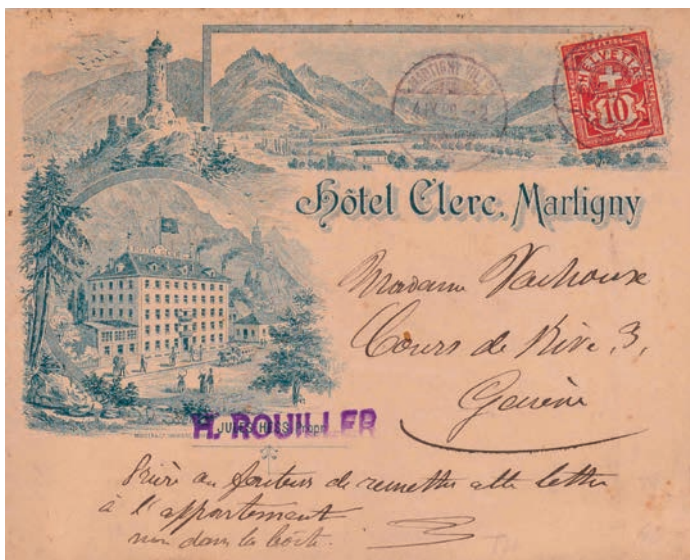 MARTIGNY VILLE
HELVETIA
10
Hôtel Clerc, Martigny
Madame Vachoux
Cours de Rive, 3,
Genève
H. ROUILLER
JULES HESS, Propr.
Prière au facteur de remettre cette lettre
à l'appartement
non dans la boîte.